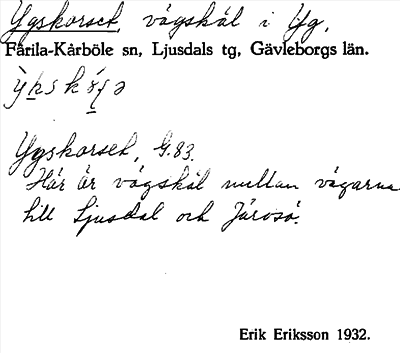 Ygskorset, vägskäl i Yg,
Färila-Kårböle sn, Ljusdals tg, Gävleborgs län.
Ygskorset, G.83.
Här är vägskäl mellan vägarna
till Ljusdal och Järvsö.
Erik Eriksson 1932.